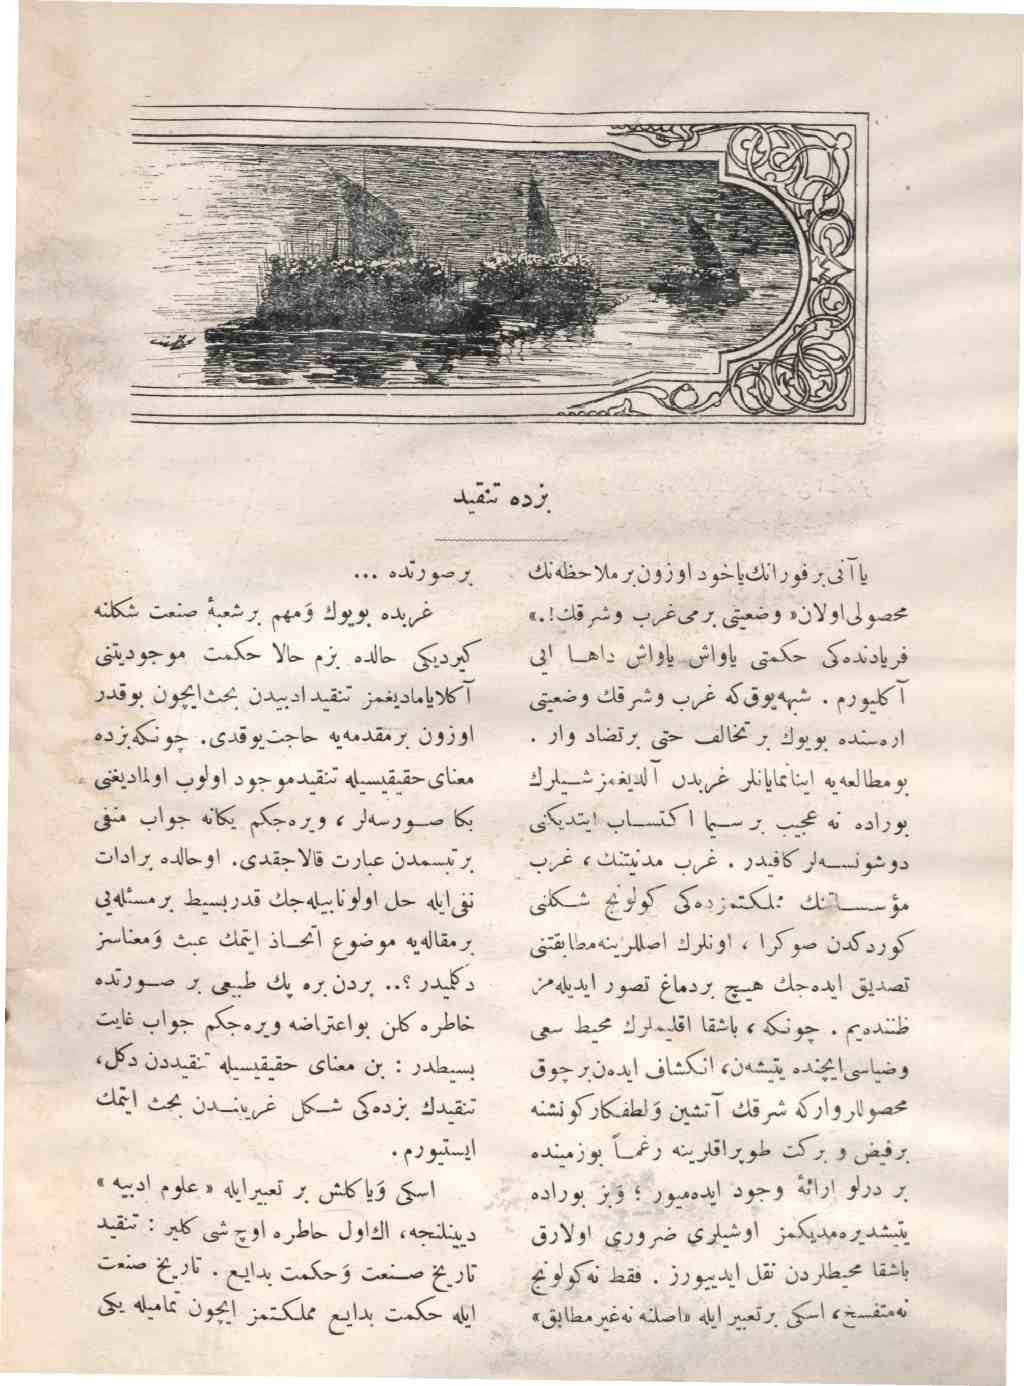 بزده تنقید
یا آنی بر فورانك یاخود اوزون بر ملاحظه‌نك
محصولی اولان « وضعیتی بر می غرب وشرقك !. »
فریادنده‌کی حکمتی یاواش یاواش داهـا ایی
آکلیورم . شبهه یوق که غرب وشرقك وضعیتی
اره‌سنده بویوك بر تخالف حتی بر تضاد وار .
بومطالعه‌یه اینانمایانلر غربدن آلدیغمز شـیلرك
بوراده نه عجیب بر سـیما اکتسـاب ایتدیکنی
دوشونسـه‌لر کافیدر . غرب مدنیتنك ، غرب
مؤسسـاتنك مملکتمزده‌کی کولونج شـکلنی
کوردکدن صوکرا ، اونلرك اصللرینه مطابقتنی
تصدیق ایده‌جك هیـچ بر دماغ تصور ایدیله‌مز
ظننده‌یم . چونکه ، باشقا اقلیملرك محیط سعی
وضیاسی ایچنده یتیشه‌ن ، انکشاف ایده‌ن بر چوق
محصوللر وارکه شرقك آتشین وَ لطفکار کونشنه
بر فیض و برکت طوپراقلرینه رغمـاً بوزمینده
بر درلو ارائهٔ وجود ایده‌میور ؛ وَ بز بوراده
یتیشدیره‌مدیکمز اوشیلری ضروری اولارق
باشقا محیطلردن نقل ایدییورز . فقط نه کولونج
نه متفسخ ، اسکی بر تعبیر ایله « اصلنه نه غیر مطابق »
بر صورتده ...
غربده بویوك وَ مهم بر شعبهٔ صنعت شکلنه
کیردیکی حالده بزم حالا حکمت موجودیتنی
آکلایامادیغمز تنقید ادبیدن بحث ایچون بوقدر
اوزون بر مقدمه‌یه حاجت یوقدی . چونکه بزده
معنای حقیقیسیله تنقید موجود اولوب اولمادیغنی
بکا صـورسه‌لر ، ویره‌جکم یکانه جواب منفی
بر تبسمدن عبارت قالاجقدی . اوحالده بر ادات
نفی ایله حل اولونابیله‌جك قدر بسیط بر مسئله‌یی
بر مقاله‌یه موضوع اتخـاذ ایتمك عبث وَ معناسز
دکلمیدر ؟ .. بردن بره پك طبیعی بر صـورتده
خاطره کلن بو اعتراضه ویره‌جکم جواب غایت
بسیطدر : بن معنای حقیقیسیله تنقیددن دکل ،
تنقیدك بزده‌کی شـکل غریبنـدن بحث ایتمك
ایستیورم .
اسکی وَ یاکلش بر تعبیر ایله « علوم ادبیه »
دیینلنجه ، اك اول خاطره اوچ شی کلیر : تنقید
تاریخ صـنعت وَ حکمت بدایـع . تاریخ صنعت
ایله حکمت بدایـع مملکـتمز ایچون تمامیله یکی